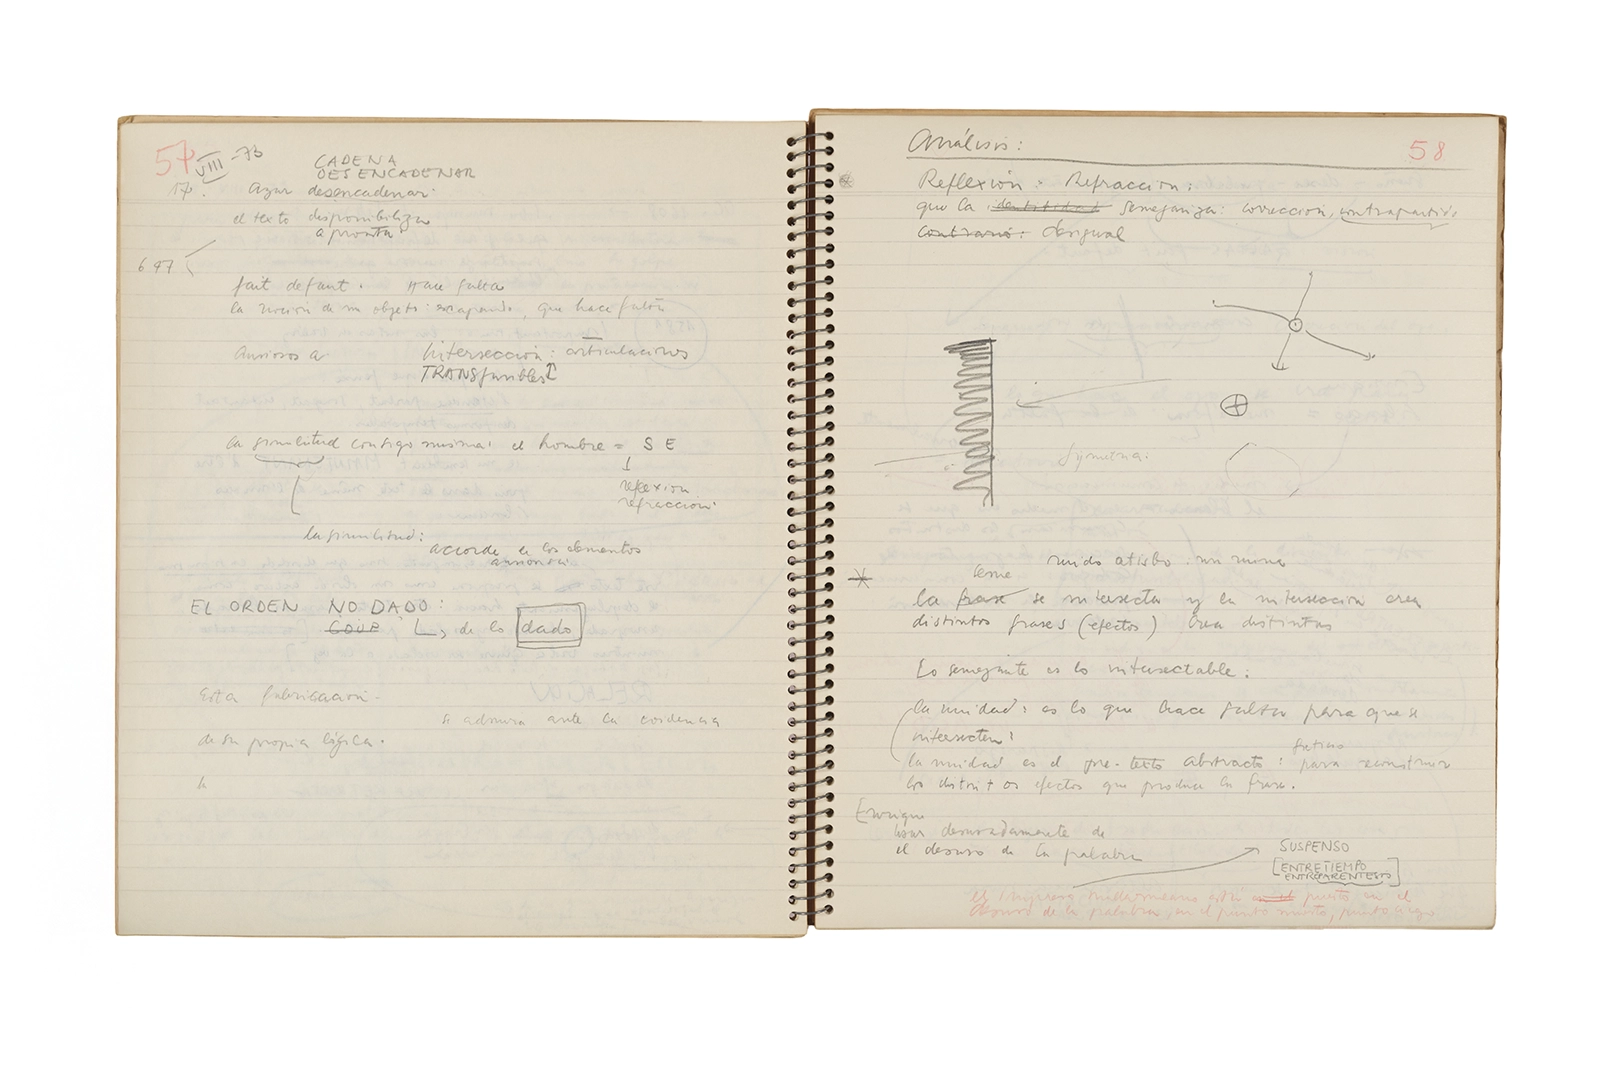 57
VIII -73
CADENA
DESENCADENAR
17. Azar desencadenar:
el texto disponibiliza
apronta
647
fait defaut. Hace falta
la noción de su objeto: escapando, que hace falta
Ansiosos a
Intersección: articulaciones
TRANSfusibles
la similitud contigo misma: el hombre = SE
reflexión
refracción:
la similitud:
acorde en los elementos
armonía
EL ORDEN NO DADO:
COUP de lo dado
Esta fabricación
se admira ante la evidencia
de su propia lógica.
58
Análisis:
Reflexión: Refracción:
que la identidad semejanza: corrección, contrapartida
contrario: desigual
*
ruido atisbo: un
la frase se intersecta y la intersección crea
distintos frases (efectos) crea distintas
Lo semejante es lo intersectable:
la unidad: es lo que hace falta para que se
intersecten:
la unidad es el pre-texto abstracto: para reconstruir
los distintos efectos que produce la frase.
Enrique
usar desusadamente de
el desuso de la palabra
SUSPENSO
[ENTRETIEMPO
ENTREPARENTESIS]
el mallarmeano está en el puesto en el
desuso de la palabra, en el punto muerto, punto ciego